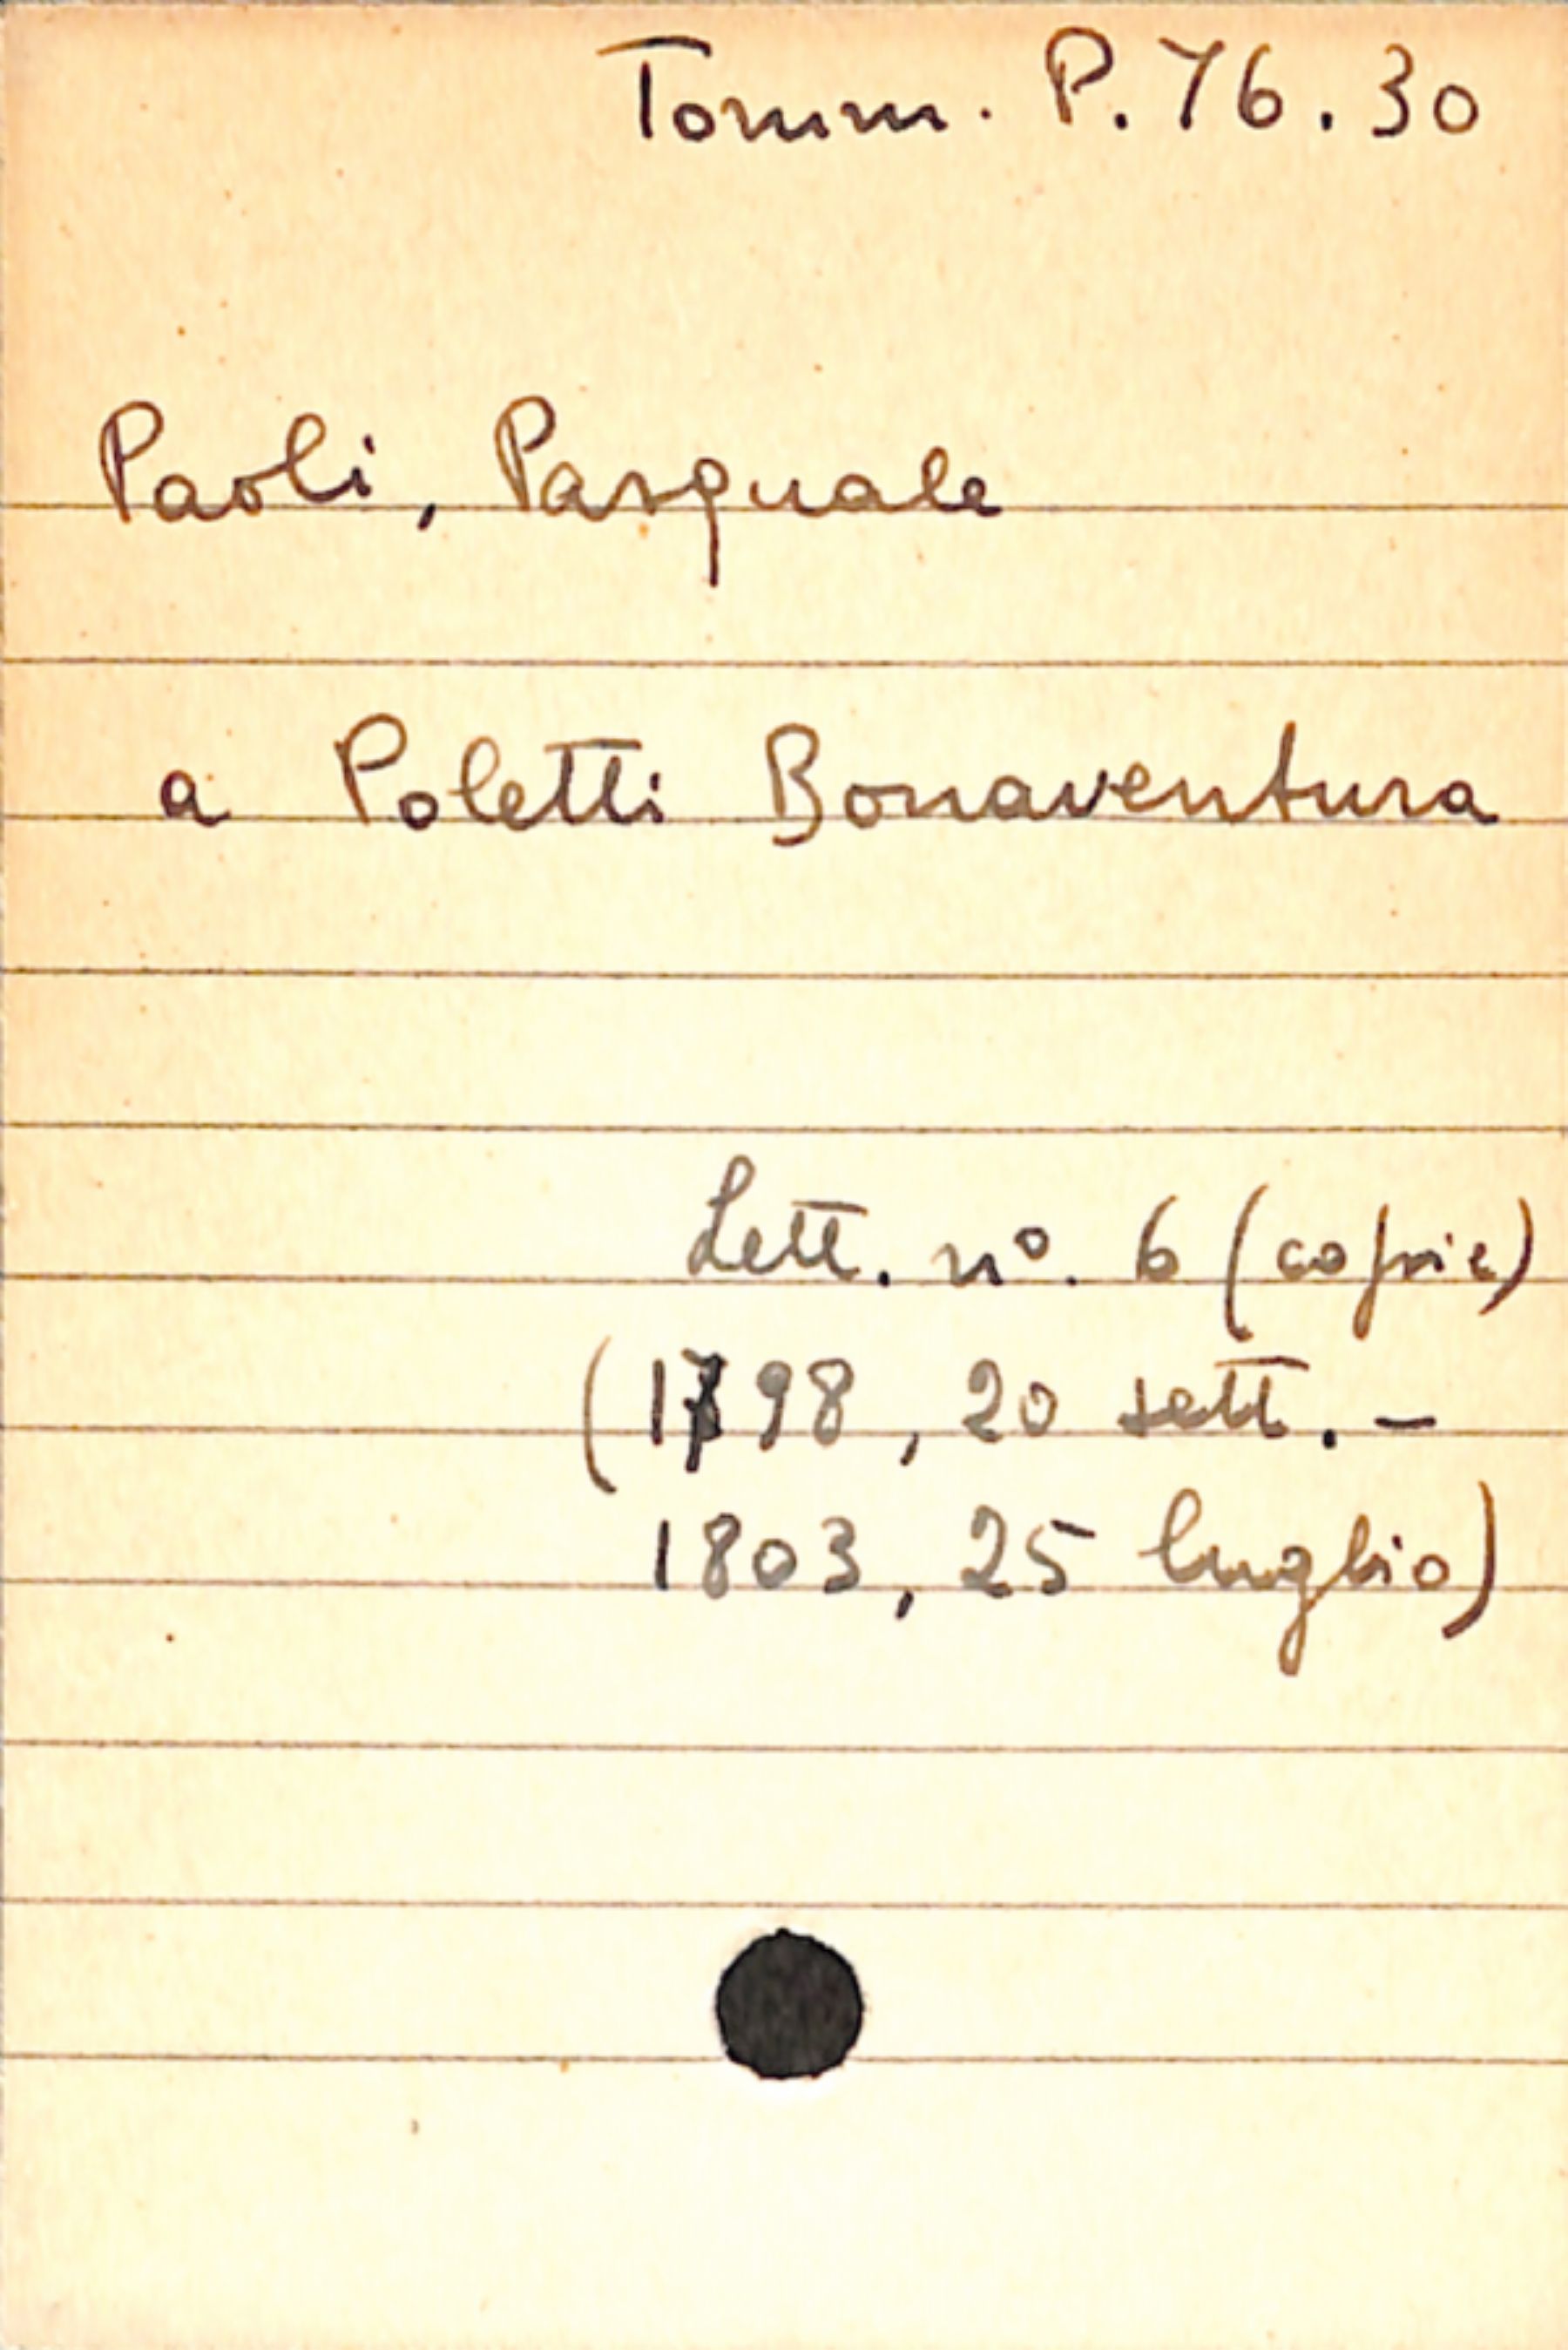 Tomm. P. 76. 30
Paoli, Pasquale
a Poletti Bonaventura
Lett. nº. 6 (copie)
(1798, 20 sett. -
1803, 25 luglio)